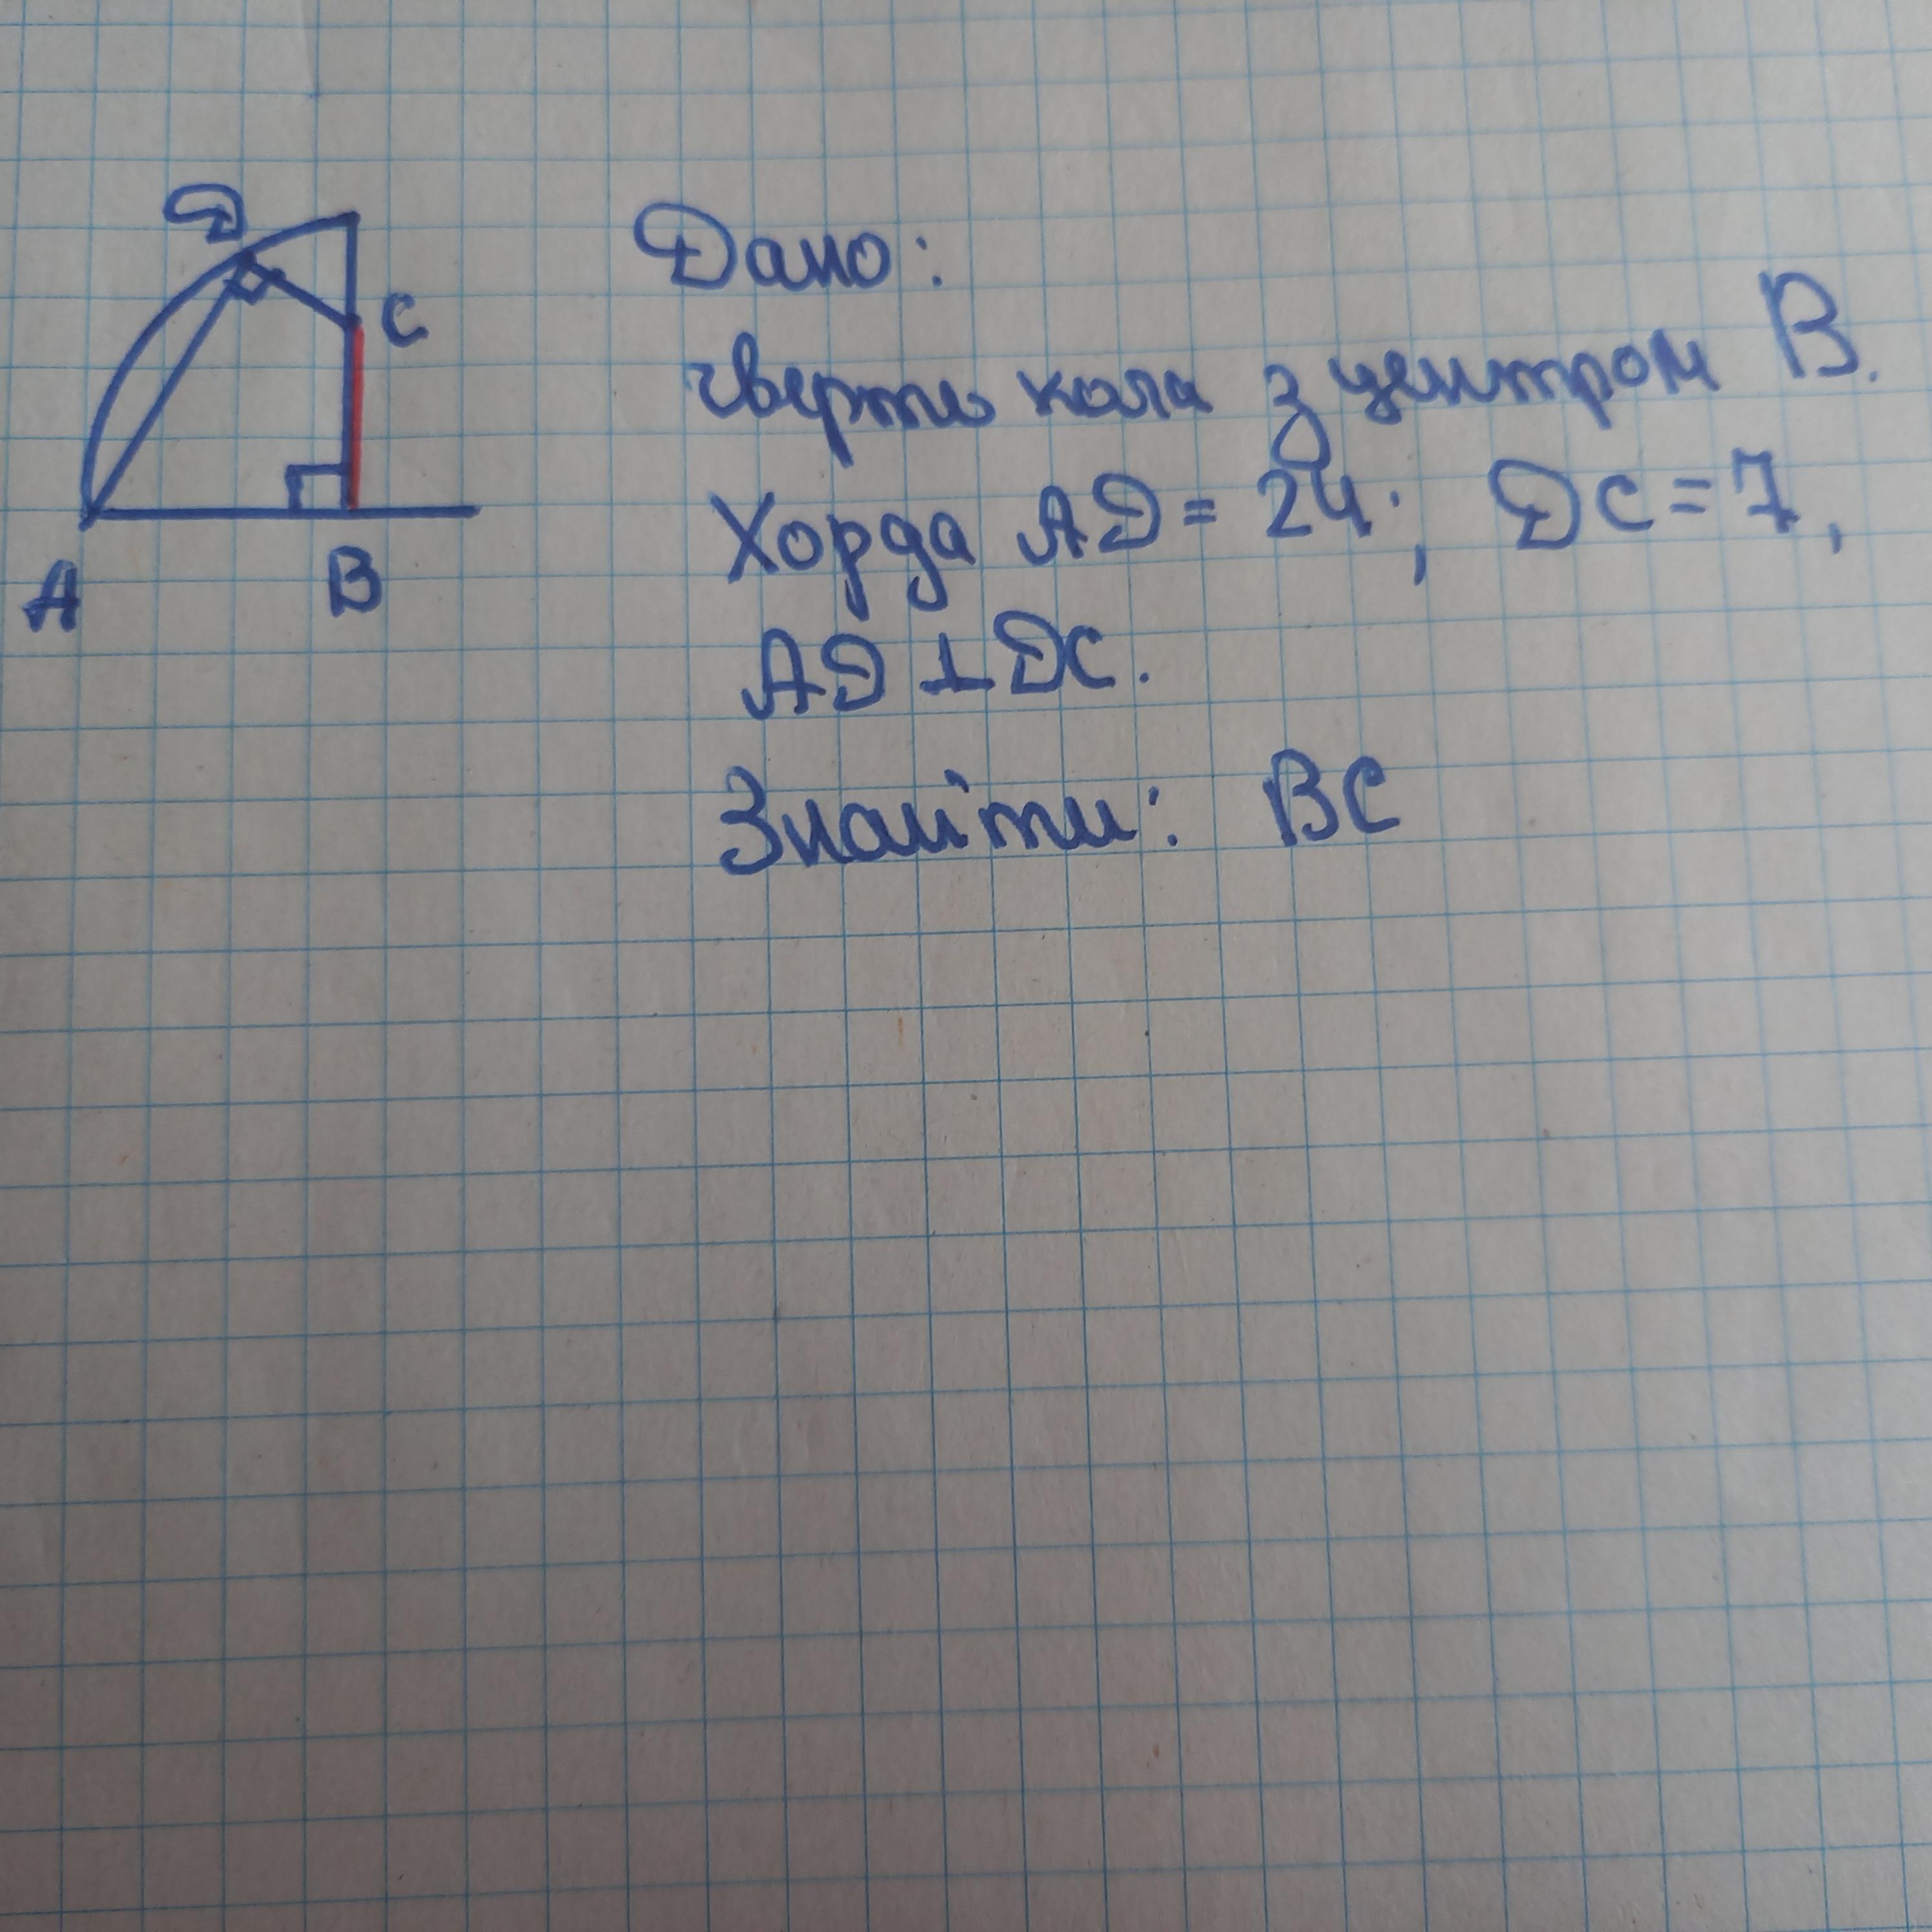 D
C
A
B
Дано:
чверть кола з центром B.
Хорда AD = 24; DC = 7,
AD ⊥ DC.
Знайти: BC